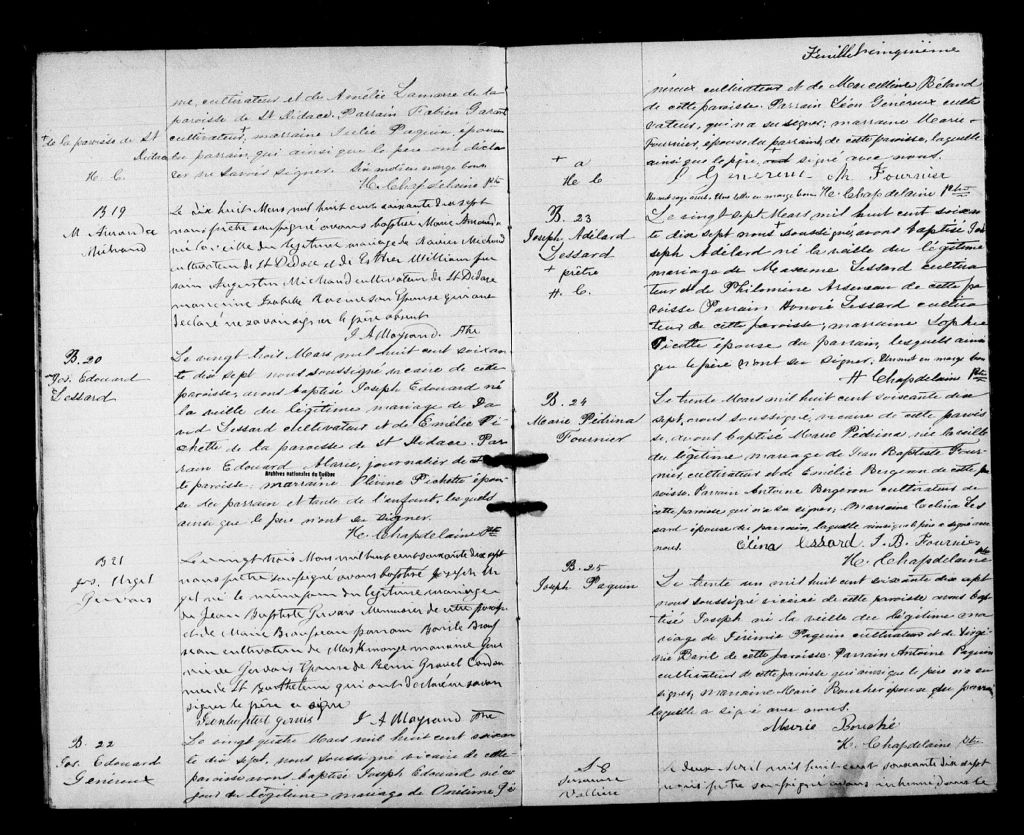 me, cultivateur et de Amélie Lamarre de la
paroisse de St Didace. Parrain Fabien Garant
+ de la paroisse de St Didace
cultivateur+, marraine Julie Paquin, épouse
du parrain, qui ainsi que le père ont décla
H. C.
rer ne savoir signer. Dix mots en marge bons
H. Chapdelaine Ptre
B 19
M Amanda
Michaud
Le dix huit Mars mil huit cent soixante dix sept
nous prêtre soussigné avons baptisé Marie Amanda
née la veille du légitime mariage de Xavier Michaud
cultivateur de St Didace et de Esther William par
rain Augustin Michaud cultivateur de St Didace
marraine Isabelle Racine son épouse qui ont
déclaré ne savoir signer le père absent
J A Mayrand Ptre
B. 20
Jos. Edouard
Lessard
Le vingt trois Mars mil huit cent soixan
te dix sept nous soussigné vicaire de cette
paroisse, avons baptisé Joseph Edouard né
la veille du légitime mariage de Da
vid Lessard cultivateur et de Emélie Pi
chette de la paroisse de St Didace. Par
rain Edouard Alarie, journalier de
Archives nationales du Québec
te paroisse. marraine Pichette épou
se du parrain et tante de l'enfant, lesquels
ainsi que le père n'ont su signer.
H. Chapdelaine Ptre
B 21
Jos. Urgel
Gervais
Le vingt trois Mars mil huit cent soixante dix sept
nous prêtre soussigné avons baptisé Joseph Ur
gel né le même jour du légitime mariage
de Jean Baptiste Gervais Menuisier de cette paroisse
et de Marie Beausoleau parrain Basile Beau
seau cultivateur de Maskinongé marraine
Gervais épouse de Rémi Gravel
de St Barthélemi qui ont déclaré ne savoir
signer le père a signé
J A Mayrand Ptre
B. 22
Jos. Edouard
Généreux
Le vingt quatre Mars mil huit cent soixan
te dix sept, nous soussigné vicaire de cette
paroisse avons baptisé Joseph Edouard né ce
jour du légitime mariage de Onésime Gé
Feuille cinquième
néreux cultivateur et de Marcelline Béland
de cette paroisse. Parrain Léon Généreux culti
vateur, qui n'a su signer; marraine Marie
Fournier, épouse du parrain, de cette paroisse, laquelle
+ a
H. C
ainsi que le père, + signé avec nous.
O Généreux M. Fournier
H. Chapdelaine Ptre
B. 23
Joseph Adélard
Lessard
+ prêtre
H. C.
Le vingt sept Mars mil huit cent soixan
te dix sept nous + soussigné, avons baptisé Jo
seph Adélard né la veille du légitime
mariage de Maxime Lessard cultiva
teur et de Philomène Arseneau de cette pa
roisse Parrain Honoré Lessard cultiva
teur de cette paroisse, marraine Sophie
Picotte épouse du parrain, lesquels ainsi
que le père n'ont su signer. Un mot en marge bon
H Chapdelaine Ptre
B. 24
Marie Pédrina
Fournier
Le trente Mars mil huit cent soixante dix
sept, nous soussigné, vicaire de cette parois
se, avons baptisé Marie Pédrina née la veille
du légitime mariage de Jean Baptiste Four
nier, cultivateur et de Emélie Bergeron de cette pa
roisse. Parrain Antoine Bergeron cultivateur de
cette paroisse qui n'a su signer; Marraine Célina Les
sard épouse du parrain, laquelle ainsi que le père a signé avec
nous. Célina Lessard. J. B. Fournier
H. Chapdelaine Ptre
B. 25
Joseph Paquin
Le trente un mil huit cent soixante dix sept
nous soussigné vicaire de cette paroisse avons bap
tisé Joseph né la veille du légitime ma
riage de Jérémie Paquin cultivateur et de Virgi
nie Baril de cette paroisse. Parrain Antoine Paquin
cultivateur de cette paroisse qui ainsi que le père n'a su
signer, marraine Marie Boucher épouse du parrain
laquelle a signé avec nous.
Marie Bouché
H. Chapdelaine Ptre
Vallière
Le deux Avril mil huit cent soixante dix sept
nous prêtre soussigné avons inhumé dans le